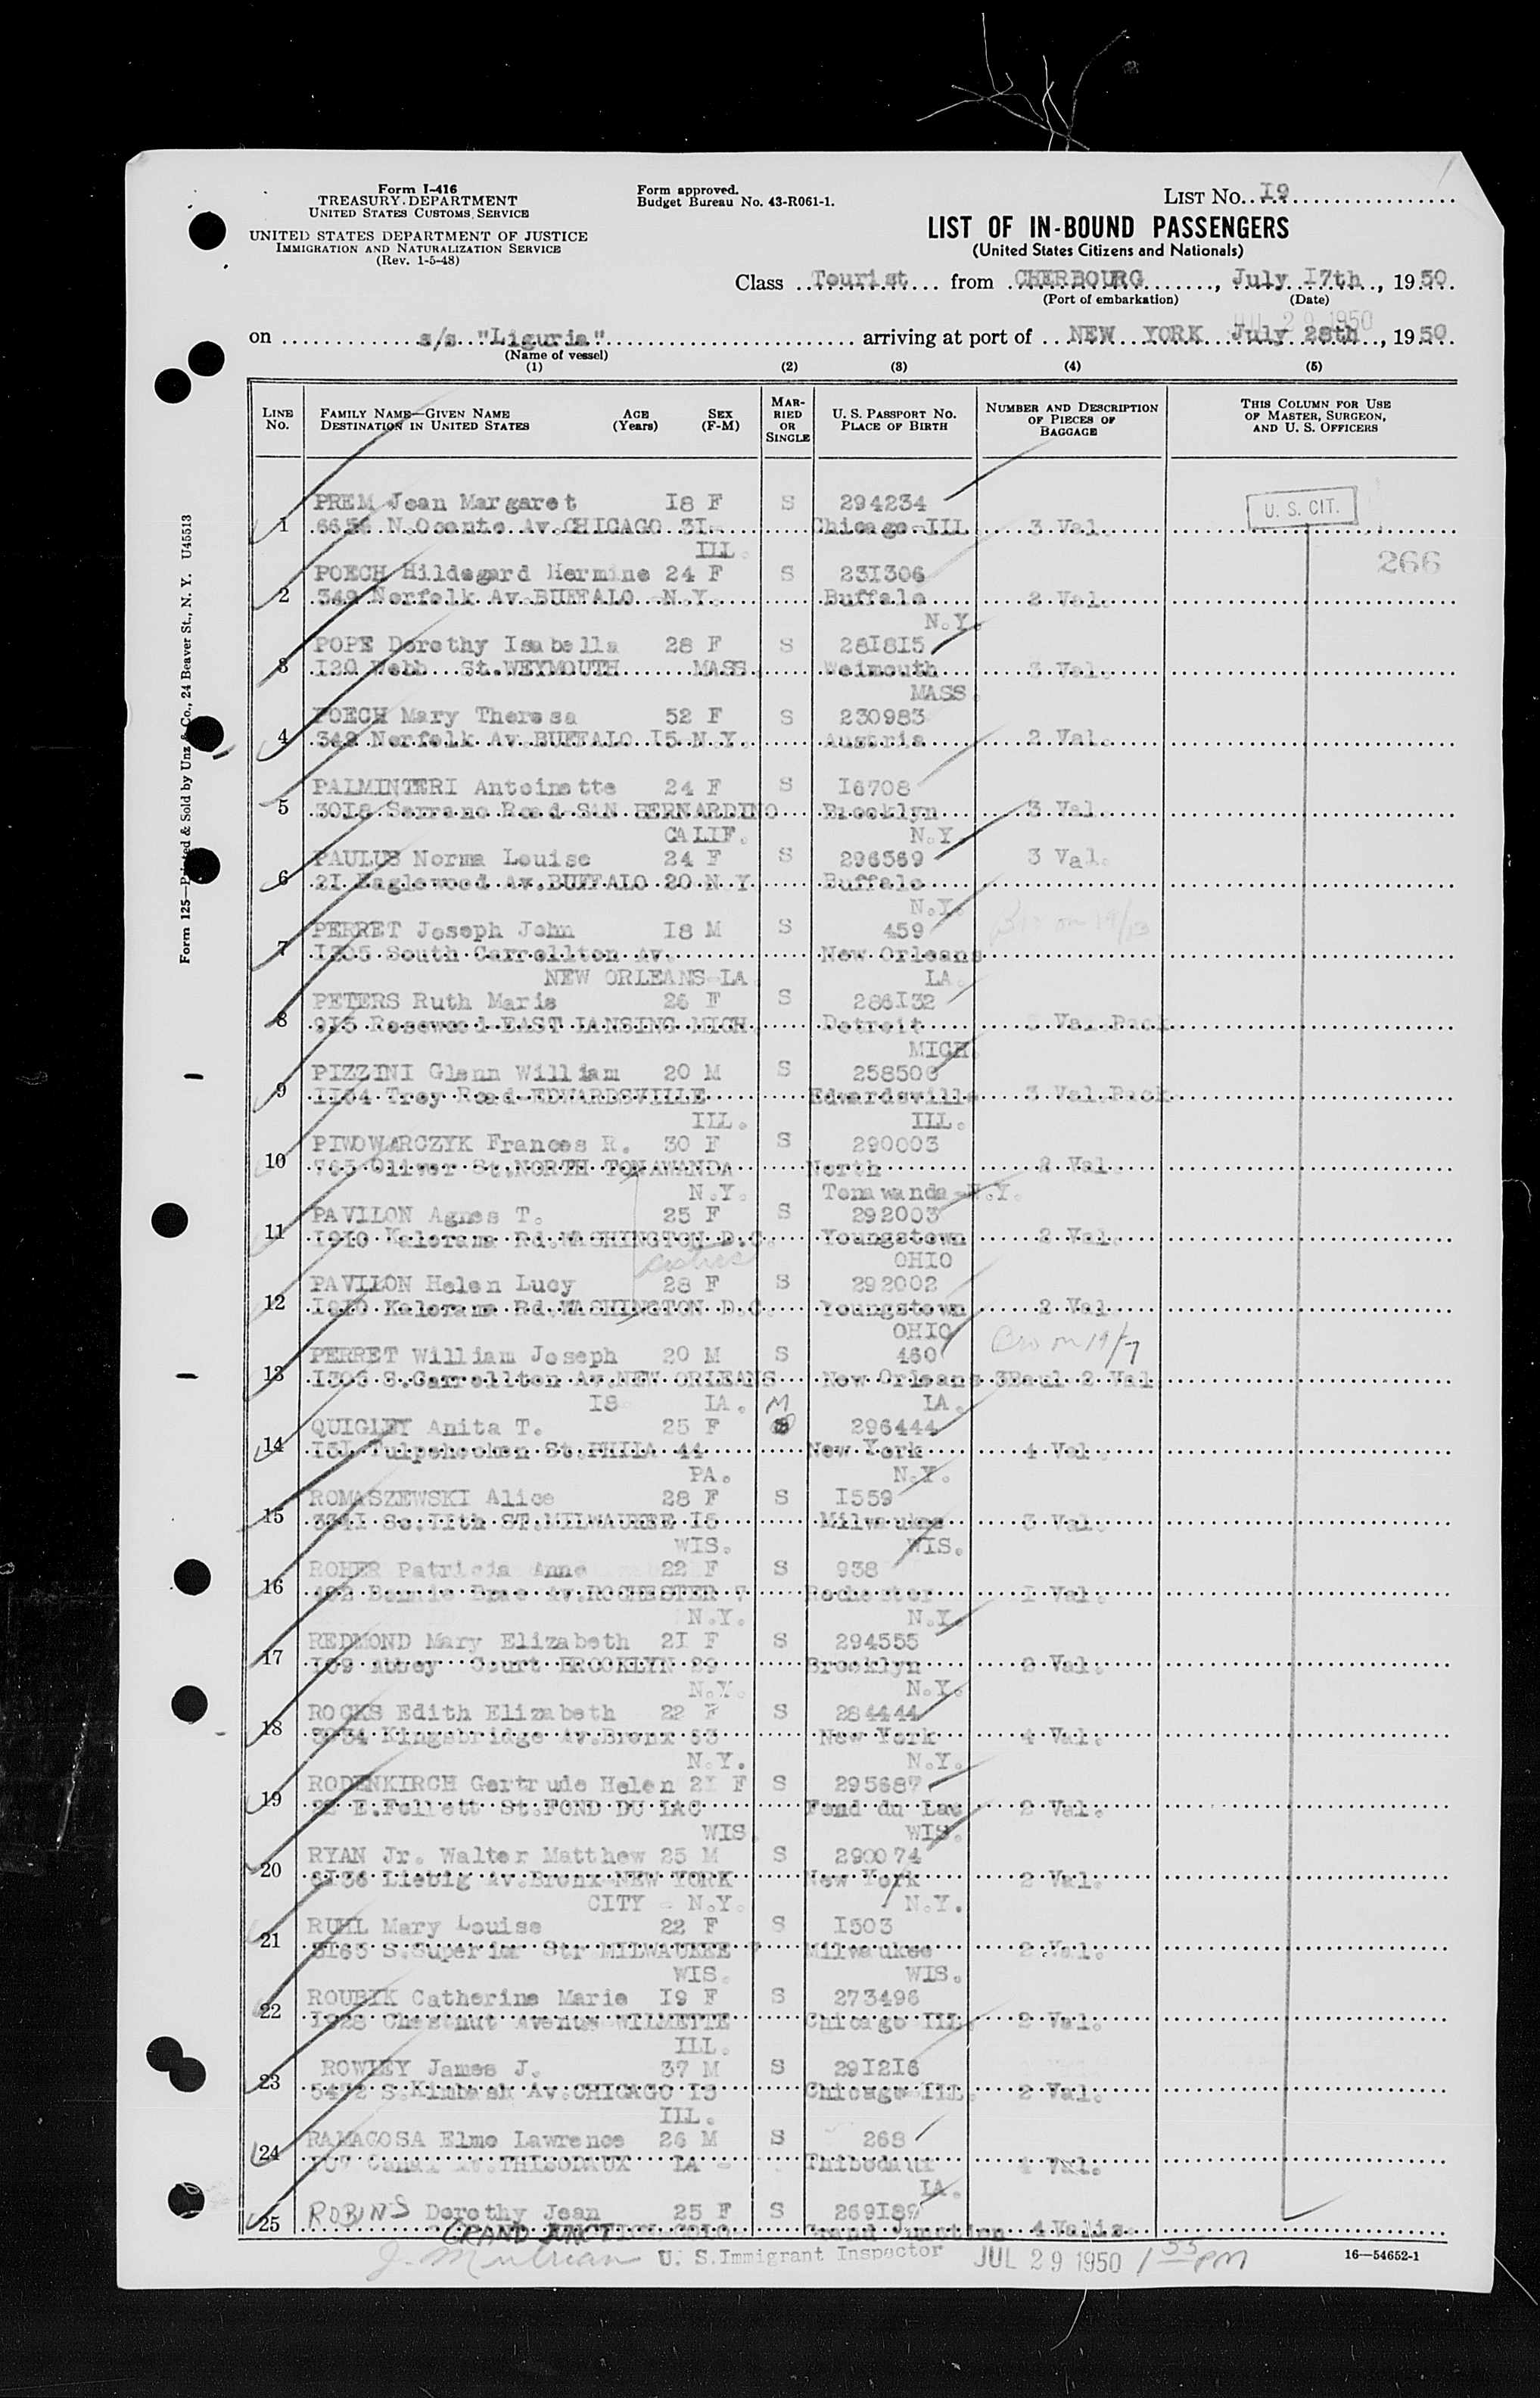 Form I-416
TREASURY DEPARTMENT
UNITED STATES CUSTOMS SERVICE
UNITED STATES DEPARTMENT OF JUSTICE
IMMIGRATION AND NATURALIZATION SERVICE
(Rev. 1-5-48)
Form approved.
Budget Bureau No. 43-R061-1.
LIST No. I9
LIST OF IN-BOUND PASSENGERS
(United States Citizens and Nationals)
Class Tourist from CHERBOURG, July I7th, 1950
(Port of embarkation) (Date)
JUL 29 1950
on s/s "Liguria" arriving at port of NEW YORK July 28th, 1950
(Name of vessel)
(1) (2) (3) (4) (5)
LINE No. FAMILY NAME—GIVEN NAME DESTINATION IN UNITED STATES AGE (Years) SEX (F-M) MARRIED OR SINGLE U. S. PASSPORT No. PLACE OF BIRTH NUMBER AND DESCRIPTION OF PIECES OF BAGGAGE THIS COLUMN FOR USE OF MASTER, SURGEON, AND U. S. OFFICERS
PREM Jean Margaret I8 F S 294234 U. S. CIT.
1 N.Oconto Av.CHICAGO 3I- Chicago-ILL 3 Val.
ILL.
266
POECH Hildegard Hermine 24 F S 23I306
2 349 Norfolk Av.BUFFALO N.Y. Buffalo 2 Val.
N.Y.
POPE Dorothy Isabella 28 F S 28I8I5
3 I20 Webb St.WEYMOUTH MASS. Weimouth 3 Val.
MASS.
POECH Mary Theresa 52 F S 230983
4 349 Norfolk Av.BUFFALO I5 N.Y. Austria 2 Val.
PALMINTERI Antoinette 24 F S I6708
5 30I8 Serrano Road-SAN BERNARDINO Brooklyn 3 Val.
CALIF. N.Y.
PAULUS Norma Louise 24 F S 296569 3 Val.
6 2I Eaglewood Av.BUFFALO 20 N Y Buffalo
N.Y.
PERRET Joseph John I8 M S 459
7 South Carrollton Av. New Orleans
NEW ORLEANS-LA. LA.
PETERS Ruth Marie 26 F S 286I32
8 9I5 Rosewood-EAST LANSING MICH. Detroit Val.Pack
MICH.
PIZZINI Glenn William 20 M S 258506
9 Troy Road-EDWARDSVILLE Edwardsville 3 Val.Pack
ILL. ILL.
PIWOWARCZYK Frances R. 30 F S 290003
10 765 Oliver St.NORTH TONAWANDA North 2 Val.
N.Y. Tonawanda-N.Y.
PAVILON Agnes T. 25 F S 292003
11 I9I0 Kalorama Rd.WASHINGTON D.C. Youngstown 2 Val.
sisters OHIO
PAVILON Helen Lucy 28 F S 292002
12 I9I0 Kalorama Rd.WASHINGTON D.C. Youngstown 2 Val
OHIO
PERRET William Joseph 20 M S 460 Bro on 19/7
13 S.Carrollton Av.NEW ORLEANS New Orleans 3Baul 2 Val
I8 LA. M LA.
QUIGLEY Anita T. 25 F 296444
14 I5I Tulpehocken St.PHILA 44 New York 4 Val.
PA. N.Y.
ROMASZEWSKI Alice 28 F S I559
15 334I So.IIth ST.MILWAUKEE I5 Milwaukee 3 Val.
WIS. WIS.
ROHER Patricia Anne 22 F S 938
16 Bonnie Brae Av.ROCHESTER 7 Rochester I Val.
N.Y. N.Y.
REDMOND Mary Elizabeth 2I F S 294555
17 Abbey Court BROOKLYN 29 Brooklyn Val.
N.Y. N.Y.
ROCKS Edith Elizabeth 22 F S 284444
18 Kingsbridge Av.Bronx 63 New York 4 Val.
N.Y. N.Y.
RODENKIRCH Gertrude Helen 2I F S 295687
19 E.Follett St.FOND DU LAC Fond du Lac 2 Val.
WIS. WIS.
RYAN Jr. Walter Matthew 25 M S 290074
20 Liebig Av.Bronx-NEW YORK New York 2 Val.
CITY - N.Y. N.Y.
RUHL Mary Louise 22 F S I503
21 S.Superior Str MILWAUKEE 7 Milwaukee 2 Val.
WIS. WIS.
ROUBIK Catherine Marie I9 F S 273496
22 Chestnut Avenue WILMETTE Chicago ILL. 2 Val.
ILL.
ROWLEY James J. 37 M S 29I2I6
23 S.Kimbark Av.CHICAGO I5 Chicago ILL. 2 Val.
ILL.
RAMAGOSA Elmo Lawrence 26 M S 268
24 Canal THIBODAUX LA - Thibodaux 4 Val.
LA.
ROBINS Dorothy Jean 25 F S 269I89
25 GRAND JUNCTION COLO. Grand Junction 4 Valis.
U. S. Immigrant Inspector JUL 29 1950 1 55 PM
16—54652-1
Form 125—Printed & Sold by Unz & Co., 24 Beaver St., N. Y. U45513